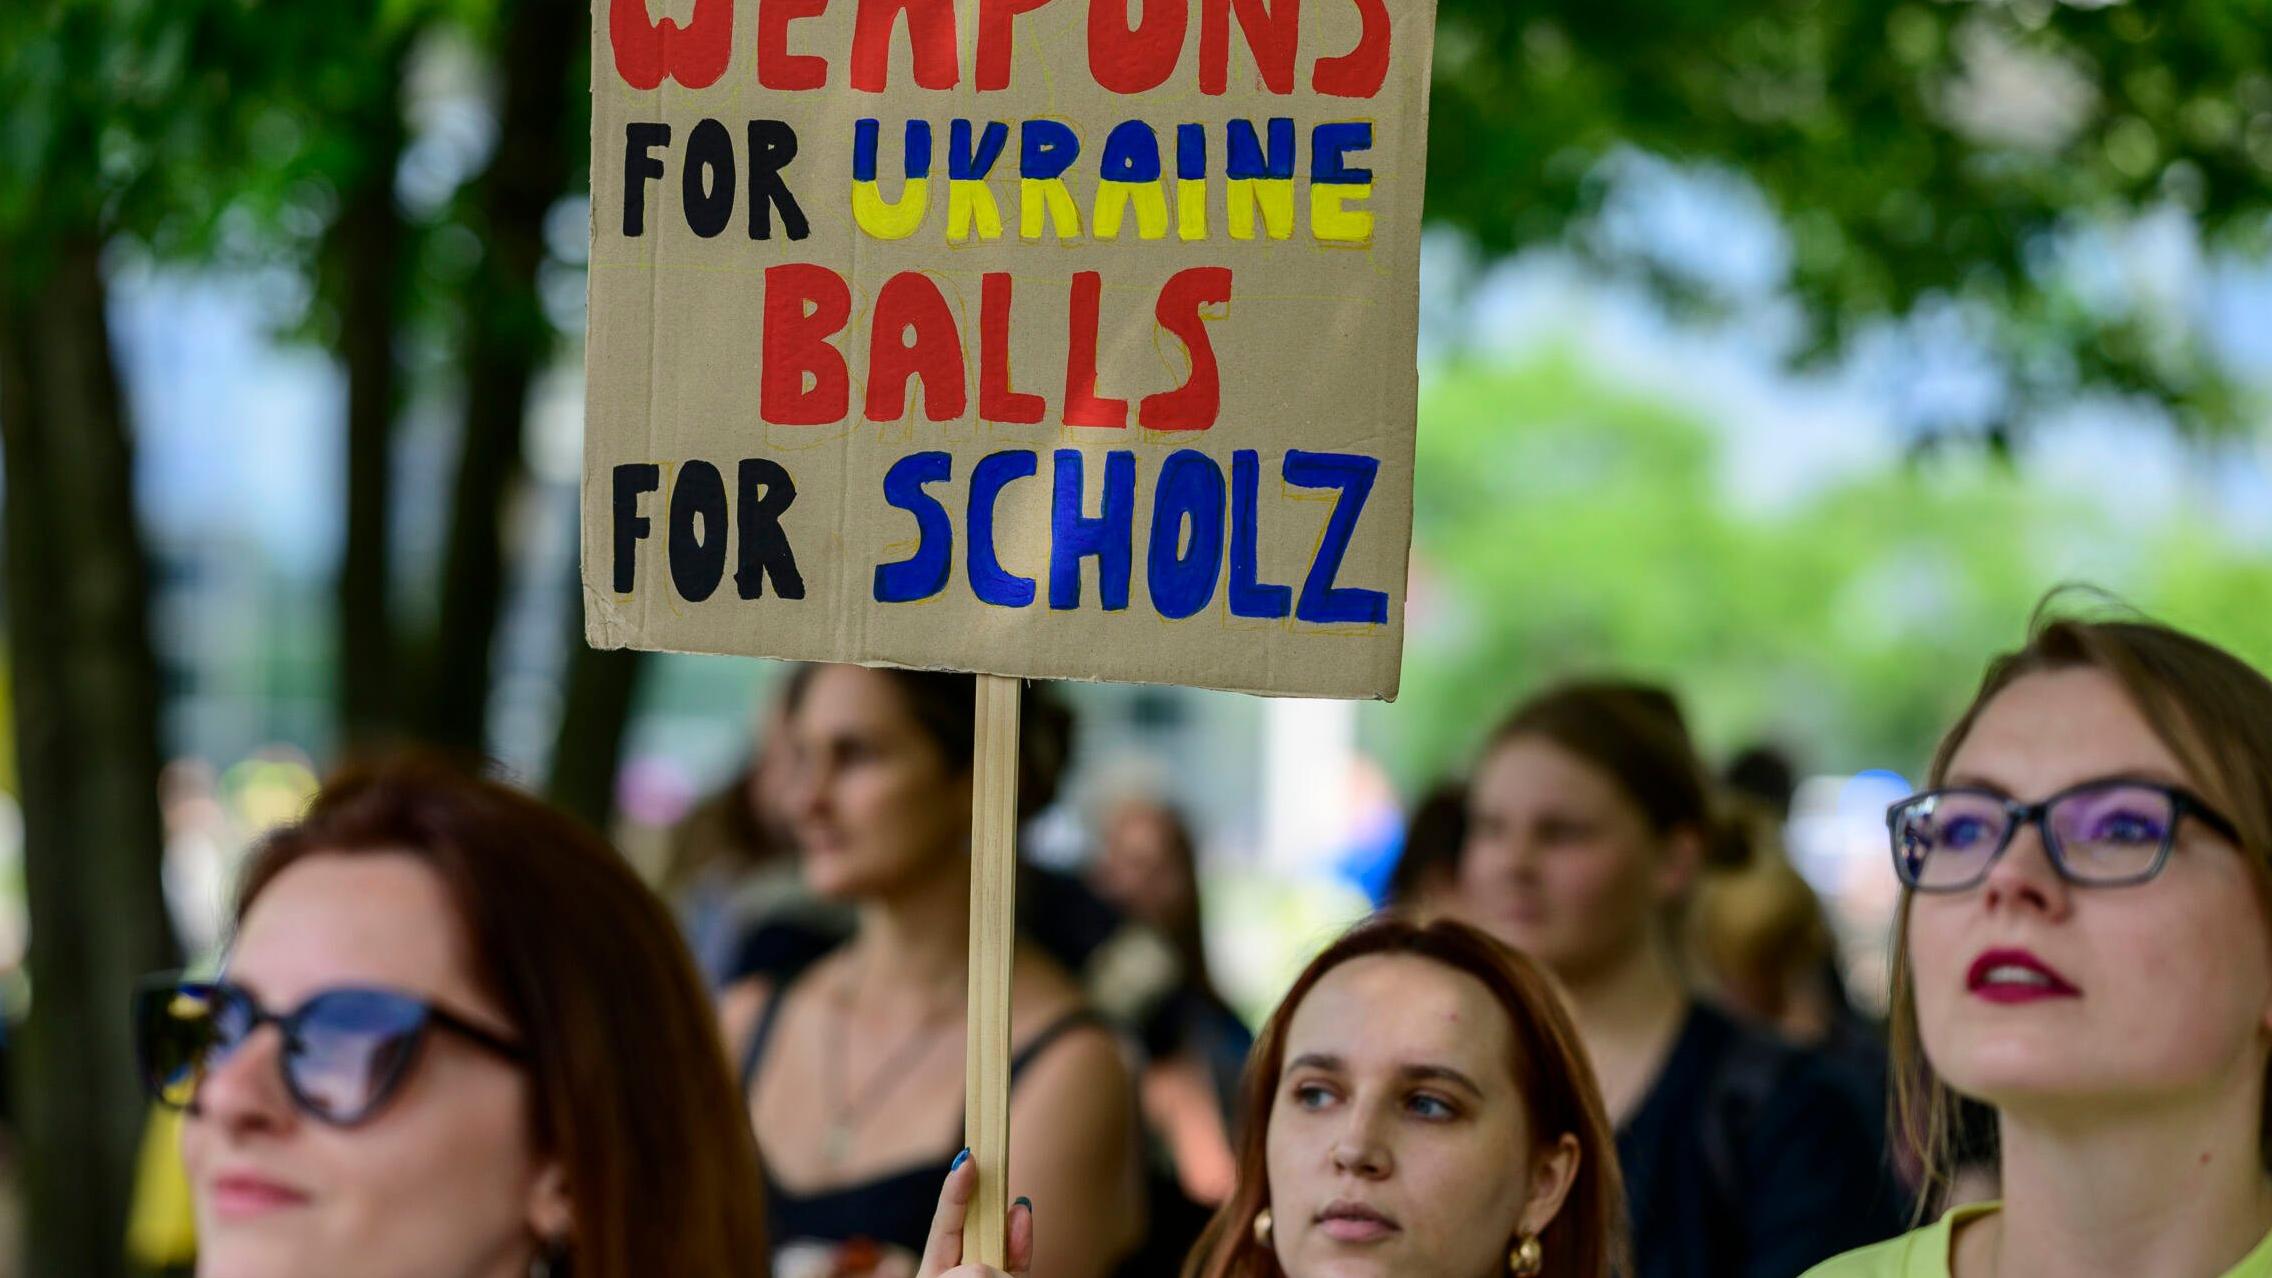 WEAPONS
FOR UKRAINE
BALLS
FOR SCHOLZ